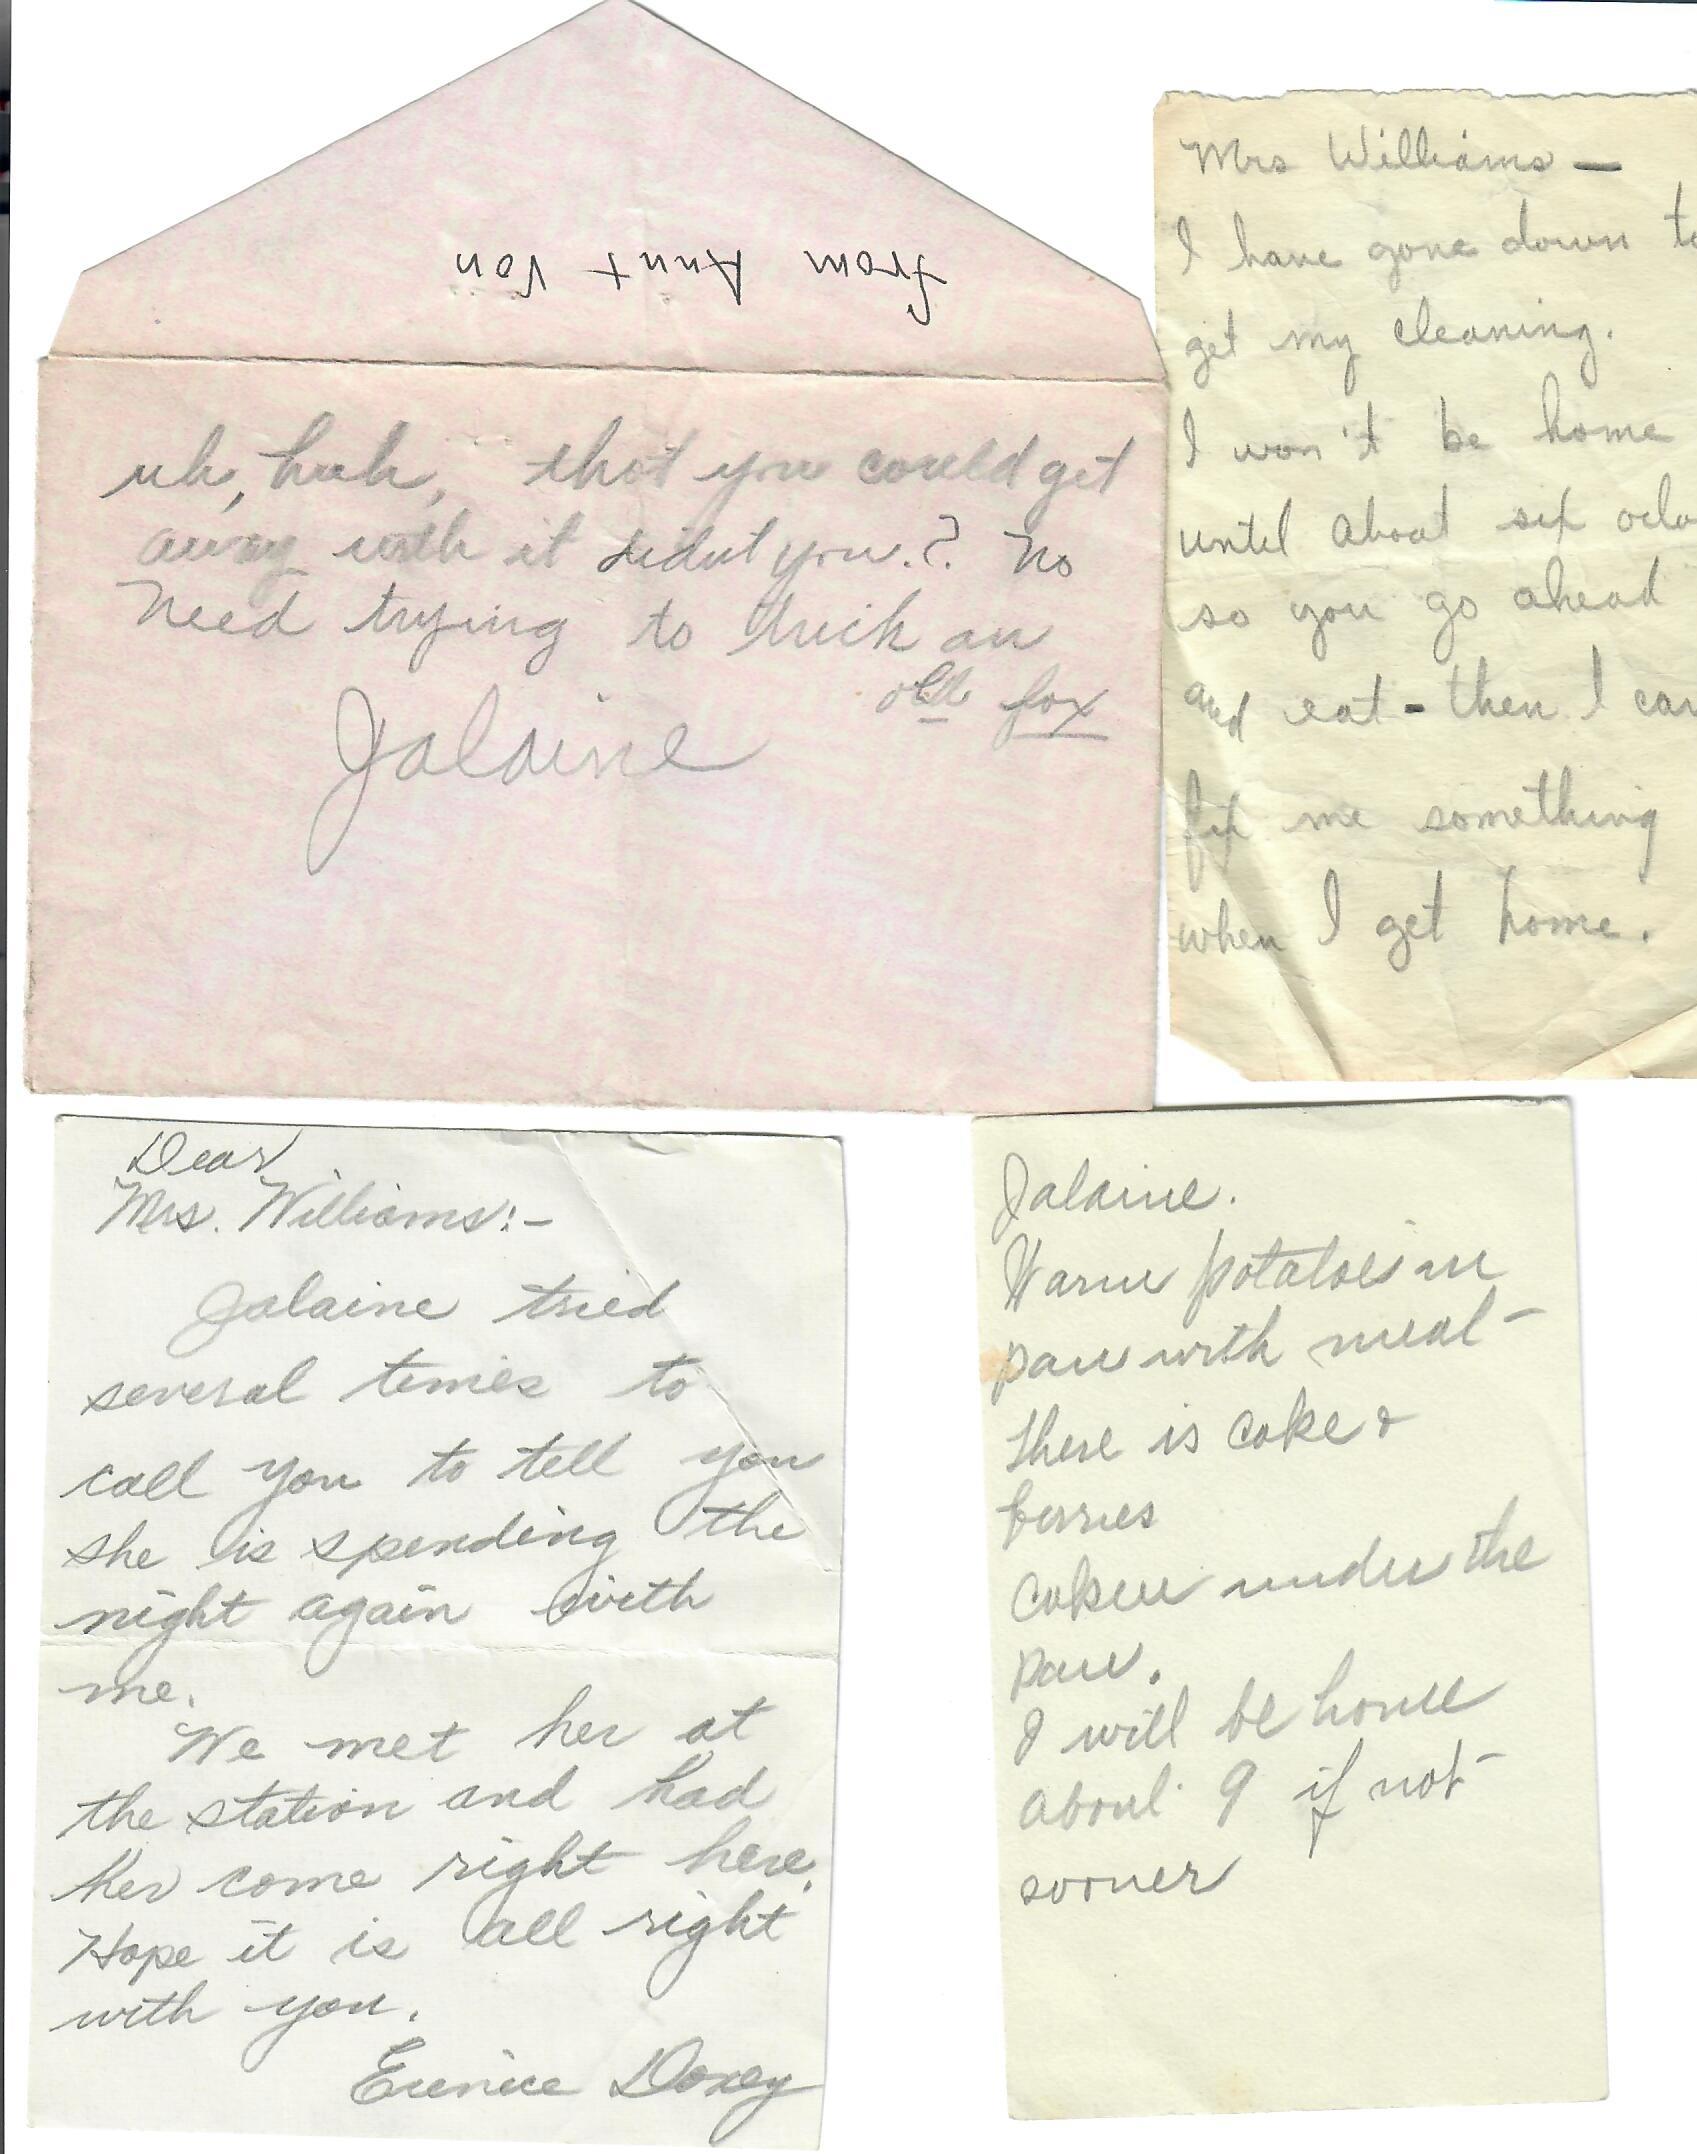 from Aunt Von
uh, huh, that you could get
away with it didnt you.? No
need trying to trick an
old fox
Jalaine
Mrs Williams —
I have gone down to
get my cleaning.
I won't be home
until about six oclo
so you go ahead
and eat - then I can
fix me something
when I get home.
Dear
Mrs. Williams:-
Jalaine tried
several times to
call you to tell you
she is spending the
night again with
me.
We met her at
the station and had
her come right here.
Hope it is all right
with you.
Eunice Doxey
Jalaine.
Warm potatoes in
pan with meat
There is cake &
berries
under the
pan.
I will be home
about 9 if not
sooner